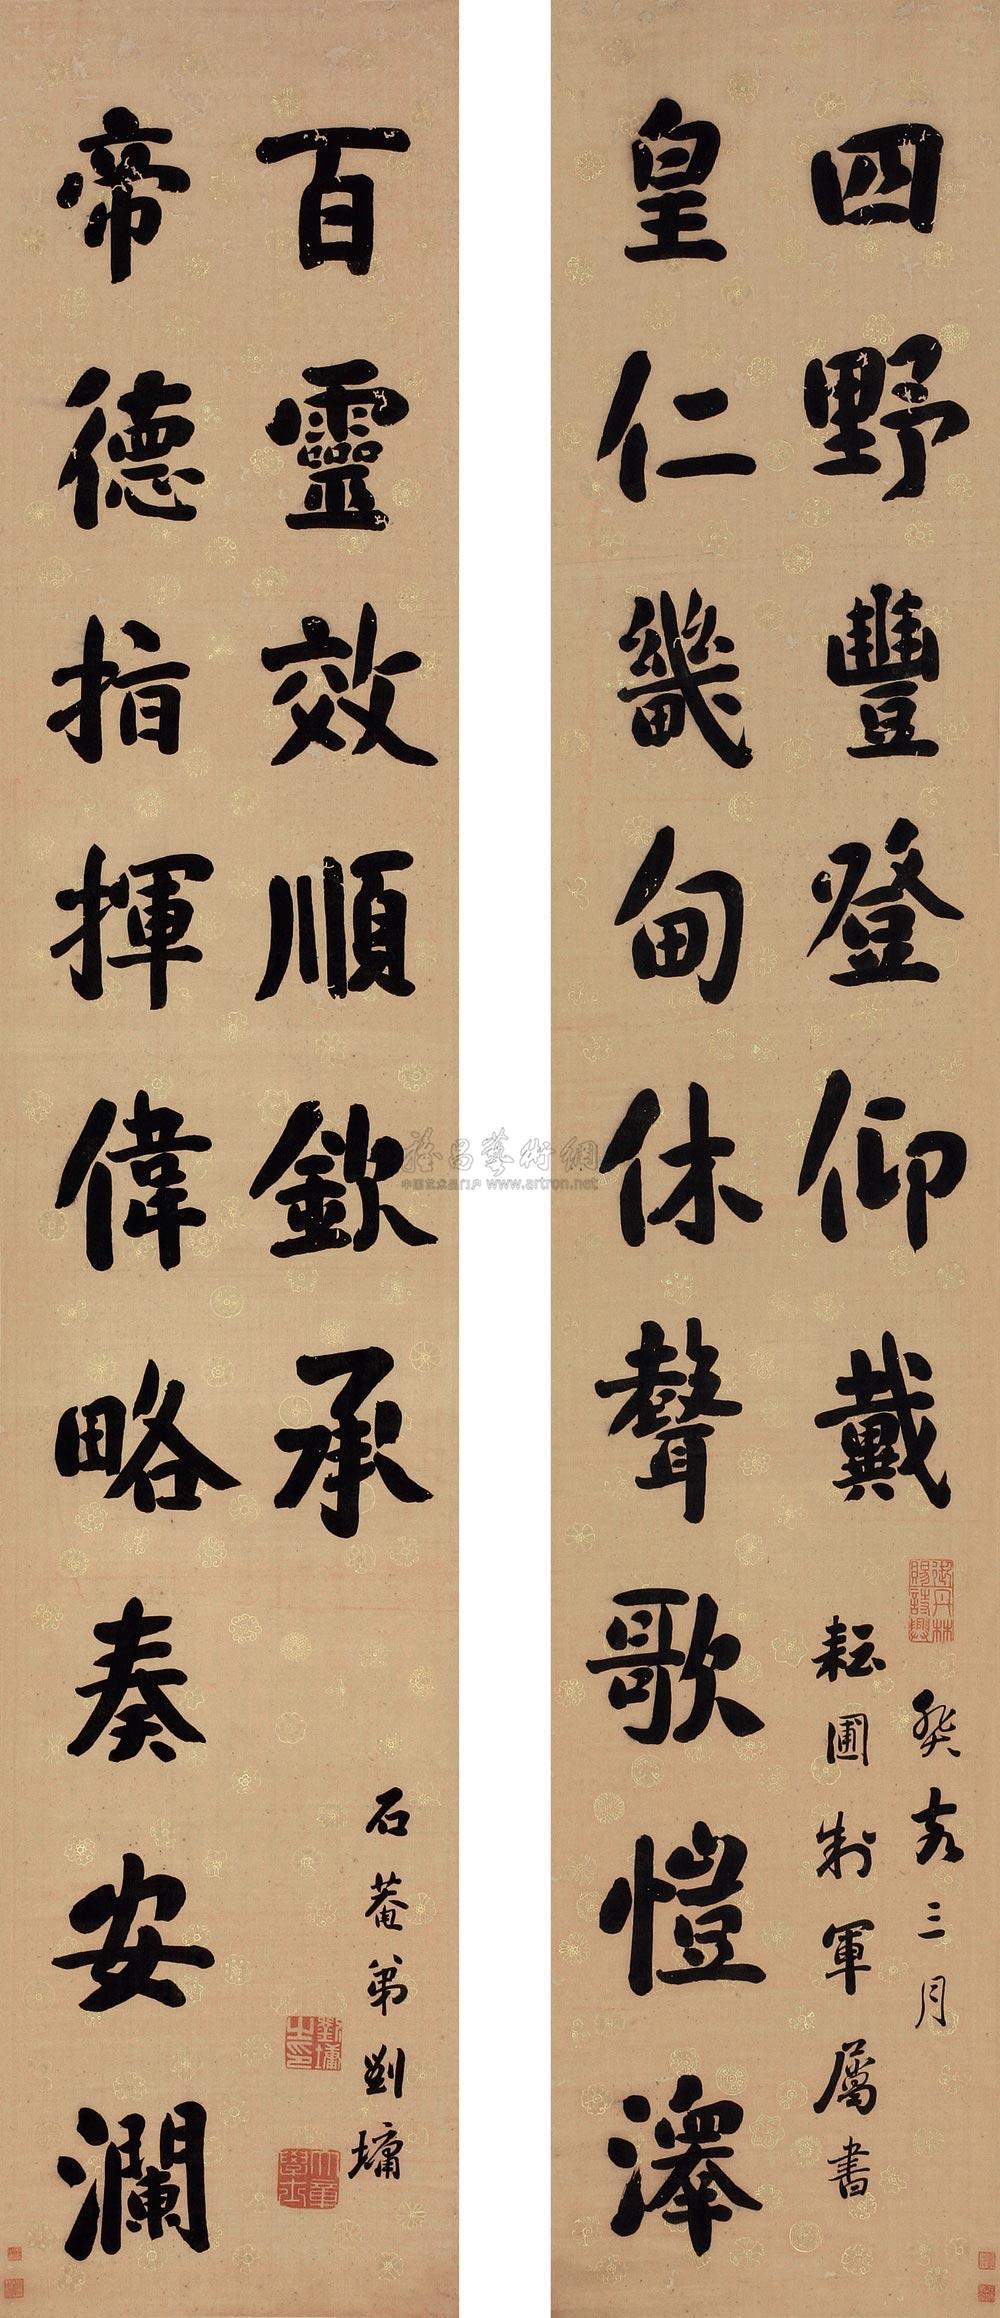 四野豐登仰戴
皇仁畿甸休聲歌愷澤
癸亥三月
耘圃制軍屬書
百靈效順欽承
帝德指揮偉略奏安瀾
石菴弟劉墉
劉墉之印
雅昌藝術網
中国艺术品门户 www.artron.net